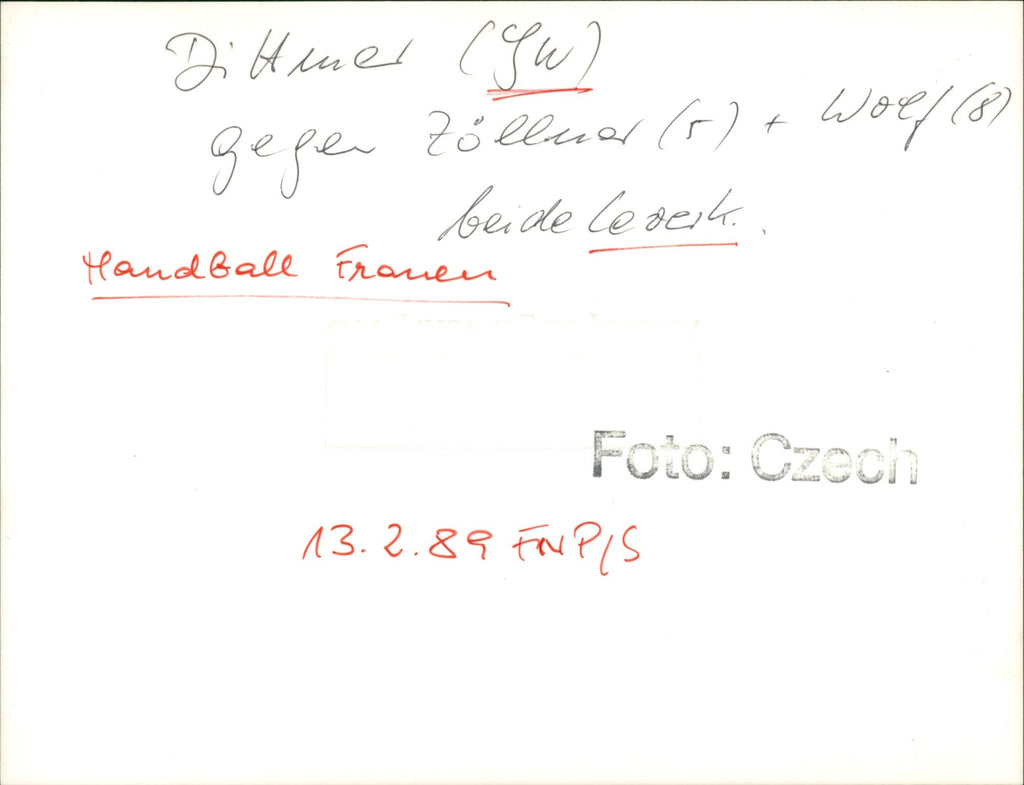 Dittmer (GW)
gegen Zöllner (5) + Wolf (8)
beide Leverk.
Handball Frauen
Foto: Czech
13.2.89 FNP/S